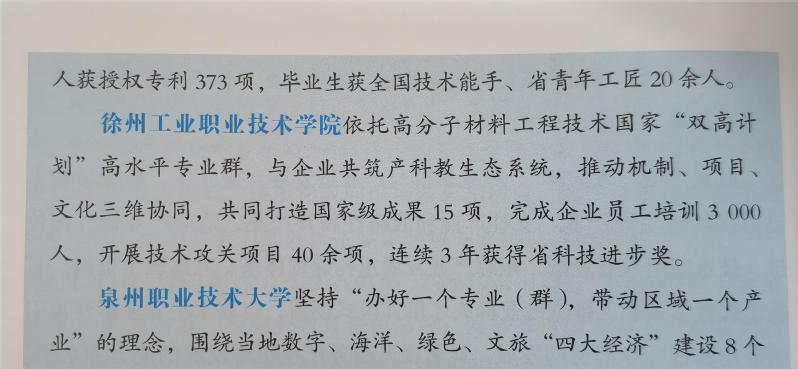 人获授权专利 373 项，毕业生获全国技术能手、省青年工匠 20 余人。
徐州工业职业技术学院依托高分子材料工程技术国家“双高计
划”高水平专业群，与企业共筑产科教生态系统，推动机制、项目、
文化三维协同，共同打造国家级成果 15 项，完成企业员工培训 3 000
人，开展技术攻关项目 40 余项，连续 3 年获得省科技进步奖。
泉州职业技术大学坚持“办好一个专业（群），带动区域一个产
业”的理念，围绕当地数字、海洋、绿色、文旅“四大经济”建设 8 个